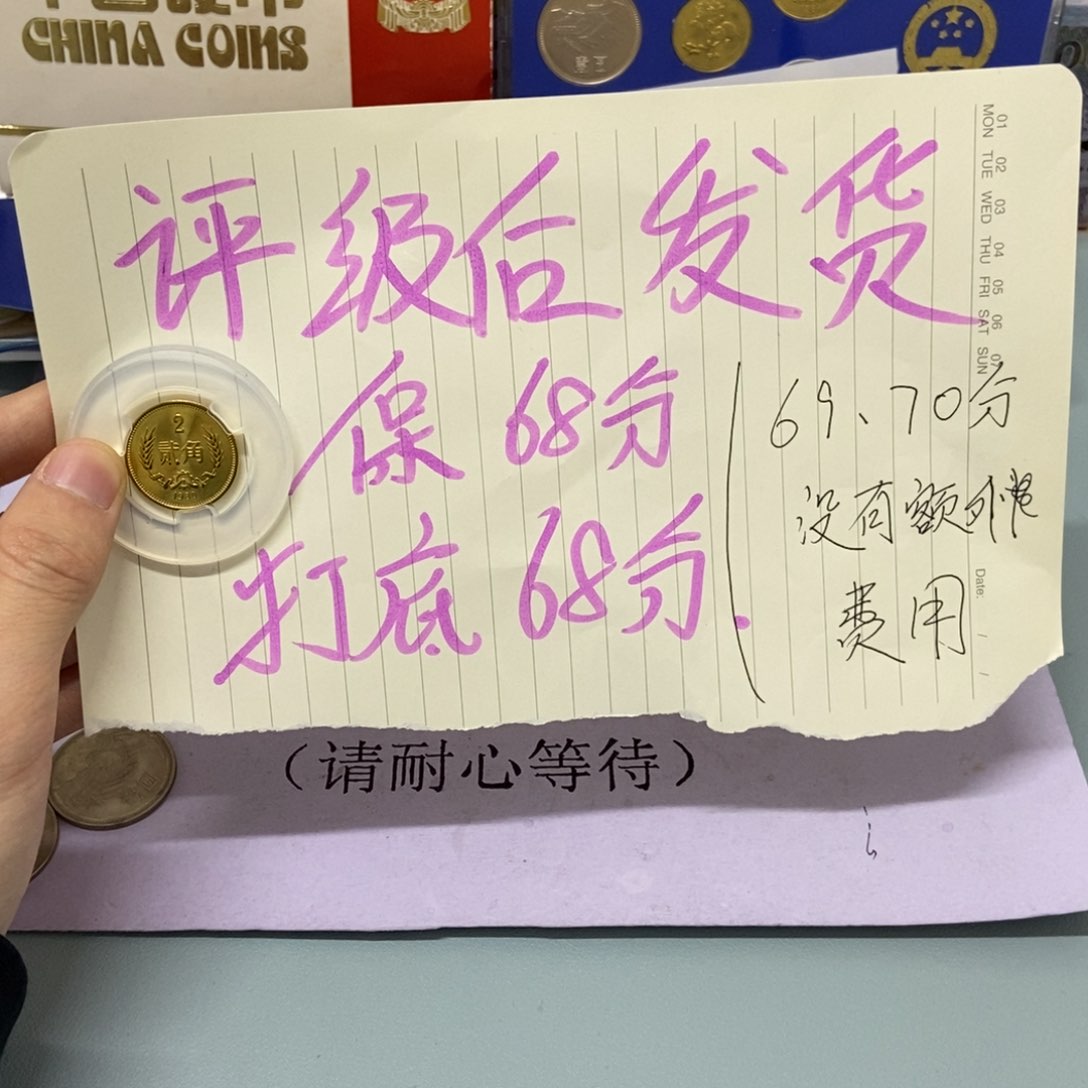 CHINA COINS
评级后发货
保 68分
打底 68分.
69、70分
没有额外
费用
01 02 03 04 05 06 07
MON TUE WED THU FRI SAT SUN
Date: / /
2
贰角
(请耐心等待)